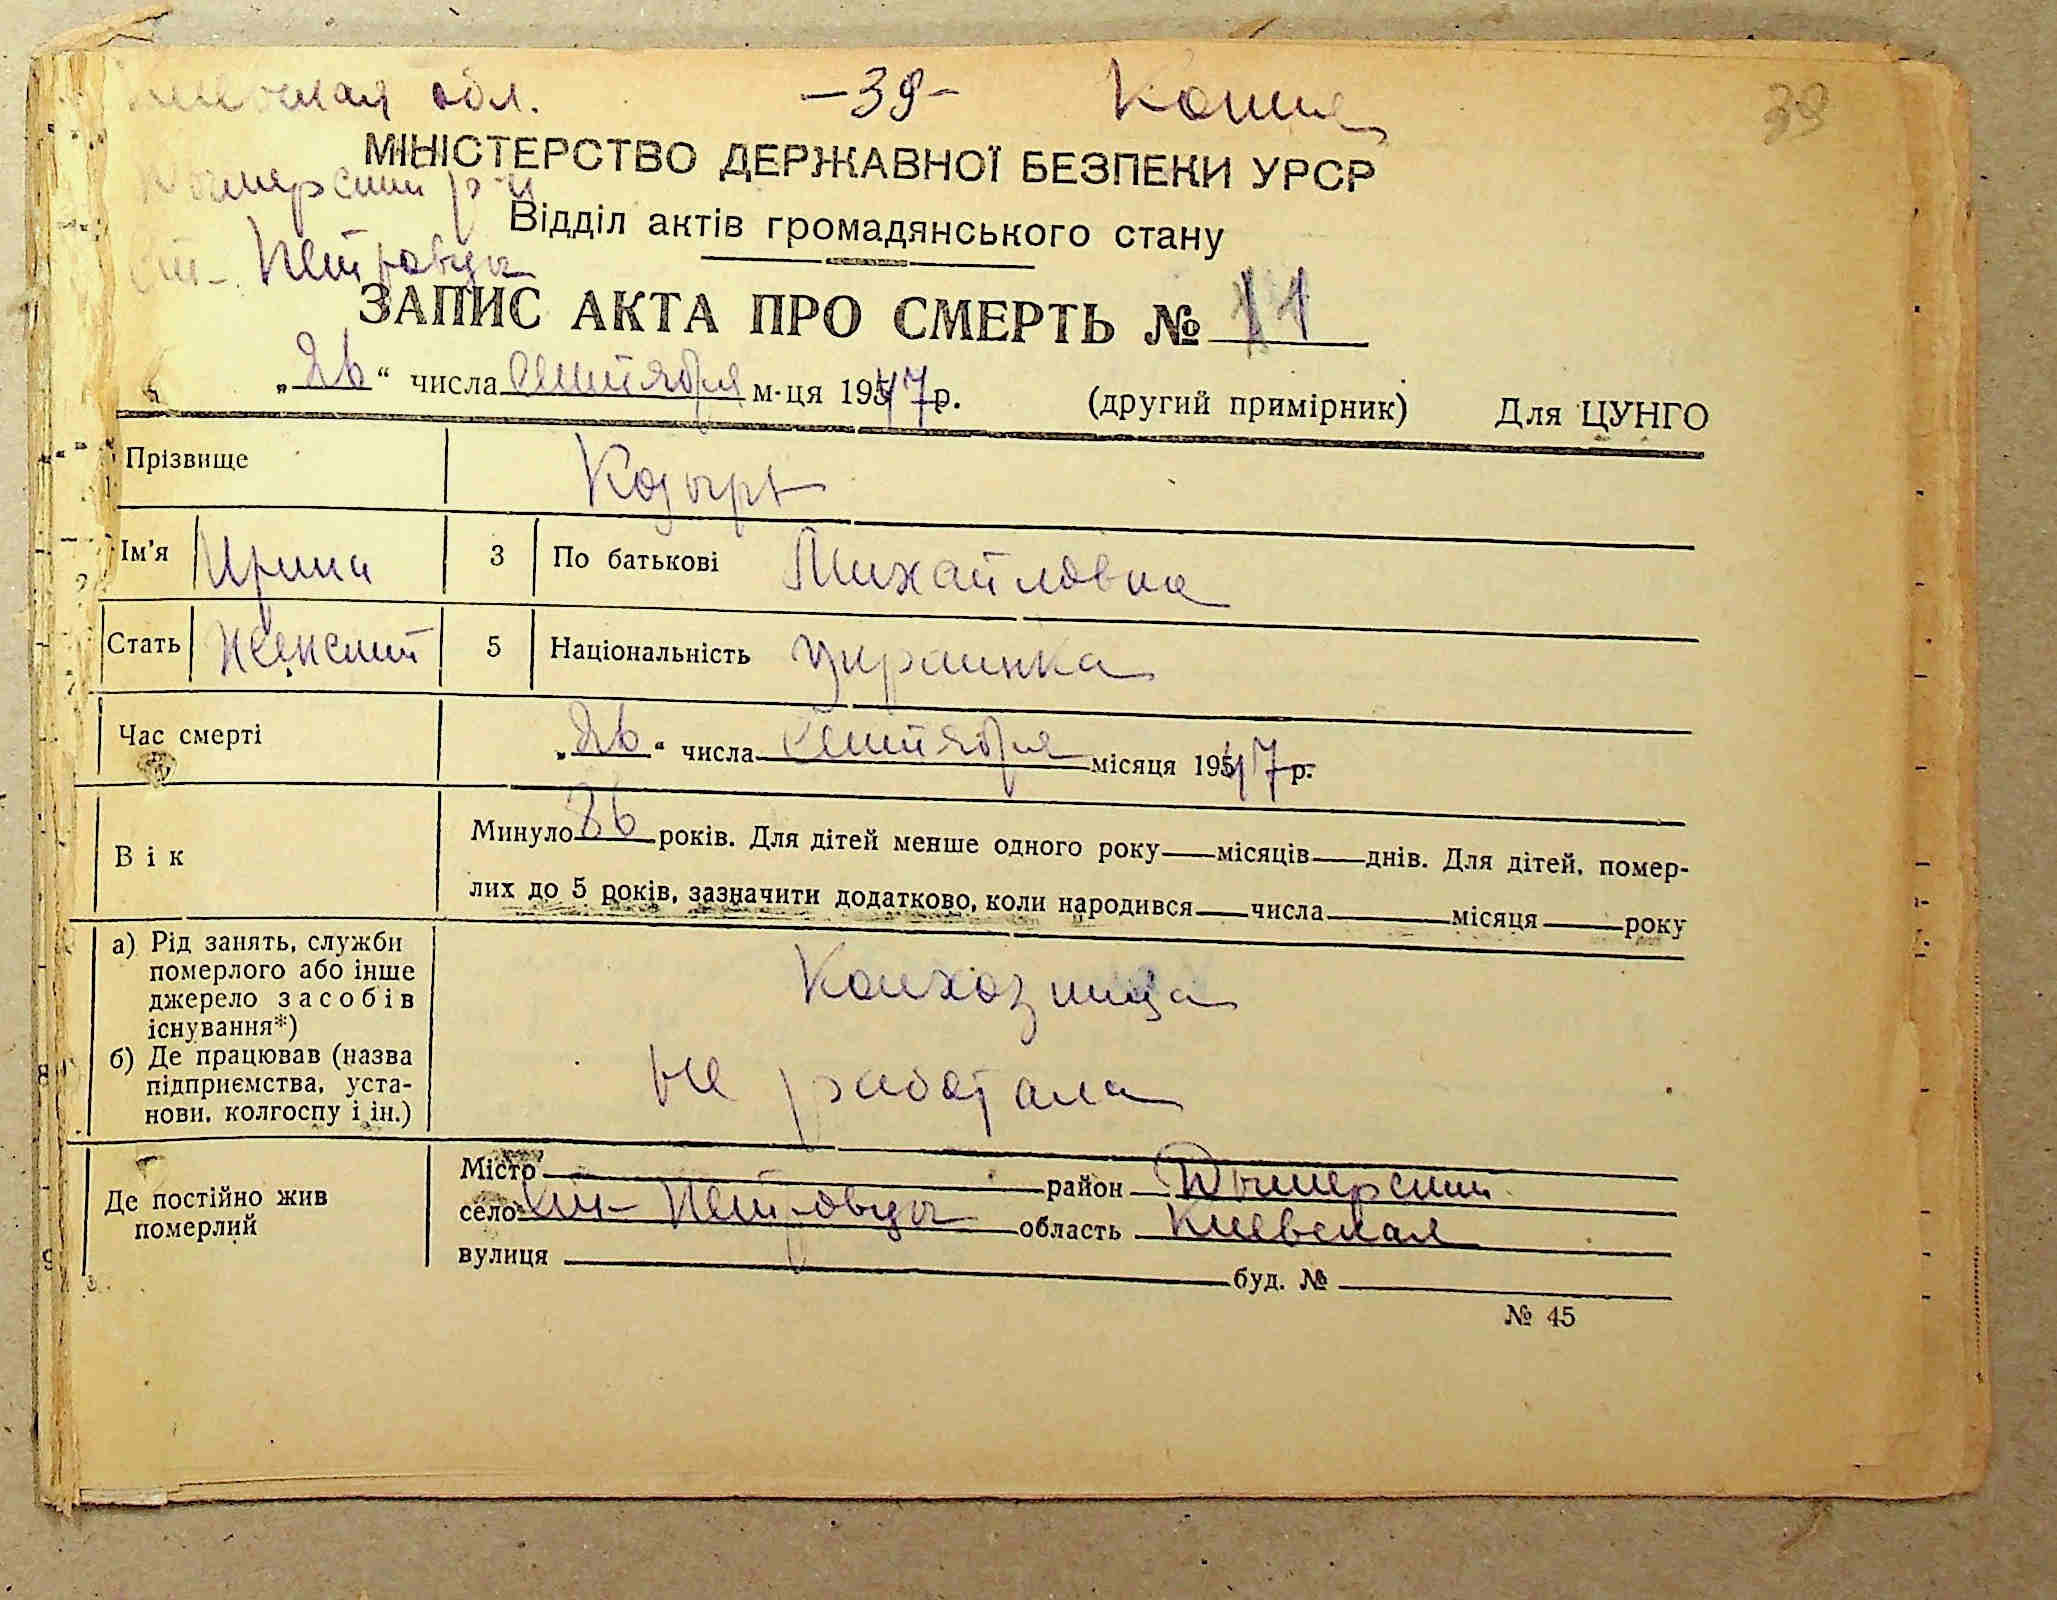 Киевская обл. -39- Копия 39
МІНІСТЕРСТВО ДЕРЖАВНОЇ БЕЗПЕКИ УРСР
Дымерский р-н
Відділ актів громадянського стану
ст- Петровцы
ЗАПИС АКТА ПРО СМЕРТЬ № 11
„26“ числа сентября м-ця 1947 р. (другий примірник) Для ЦУНГО
Прізвище Козырь
Ім'я Ирина 3 По батькові Михайловна
Стать женский 5 Національність украинка
Час смерті „26“ числа сентября місяця 1947 р.
Вік Минуло 86 років. Для дітей менше одного року — місяців — днів. Для дітей, помер-
лих до 5 років, зазначити додатково, коли народився — числа — місяця — року
а) Рід занять, служби
померлого або інше
джерело засобів
існування*)
Колхозница
б) Де працював (назва
підприємства, уста-
нови, колгоспу і ін.)
не работала
Де постійно жив
померлий
Місто район Дымерский
село ст- Петровцы область Киевская
вулиця буд. №
№ 45